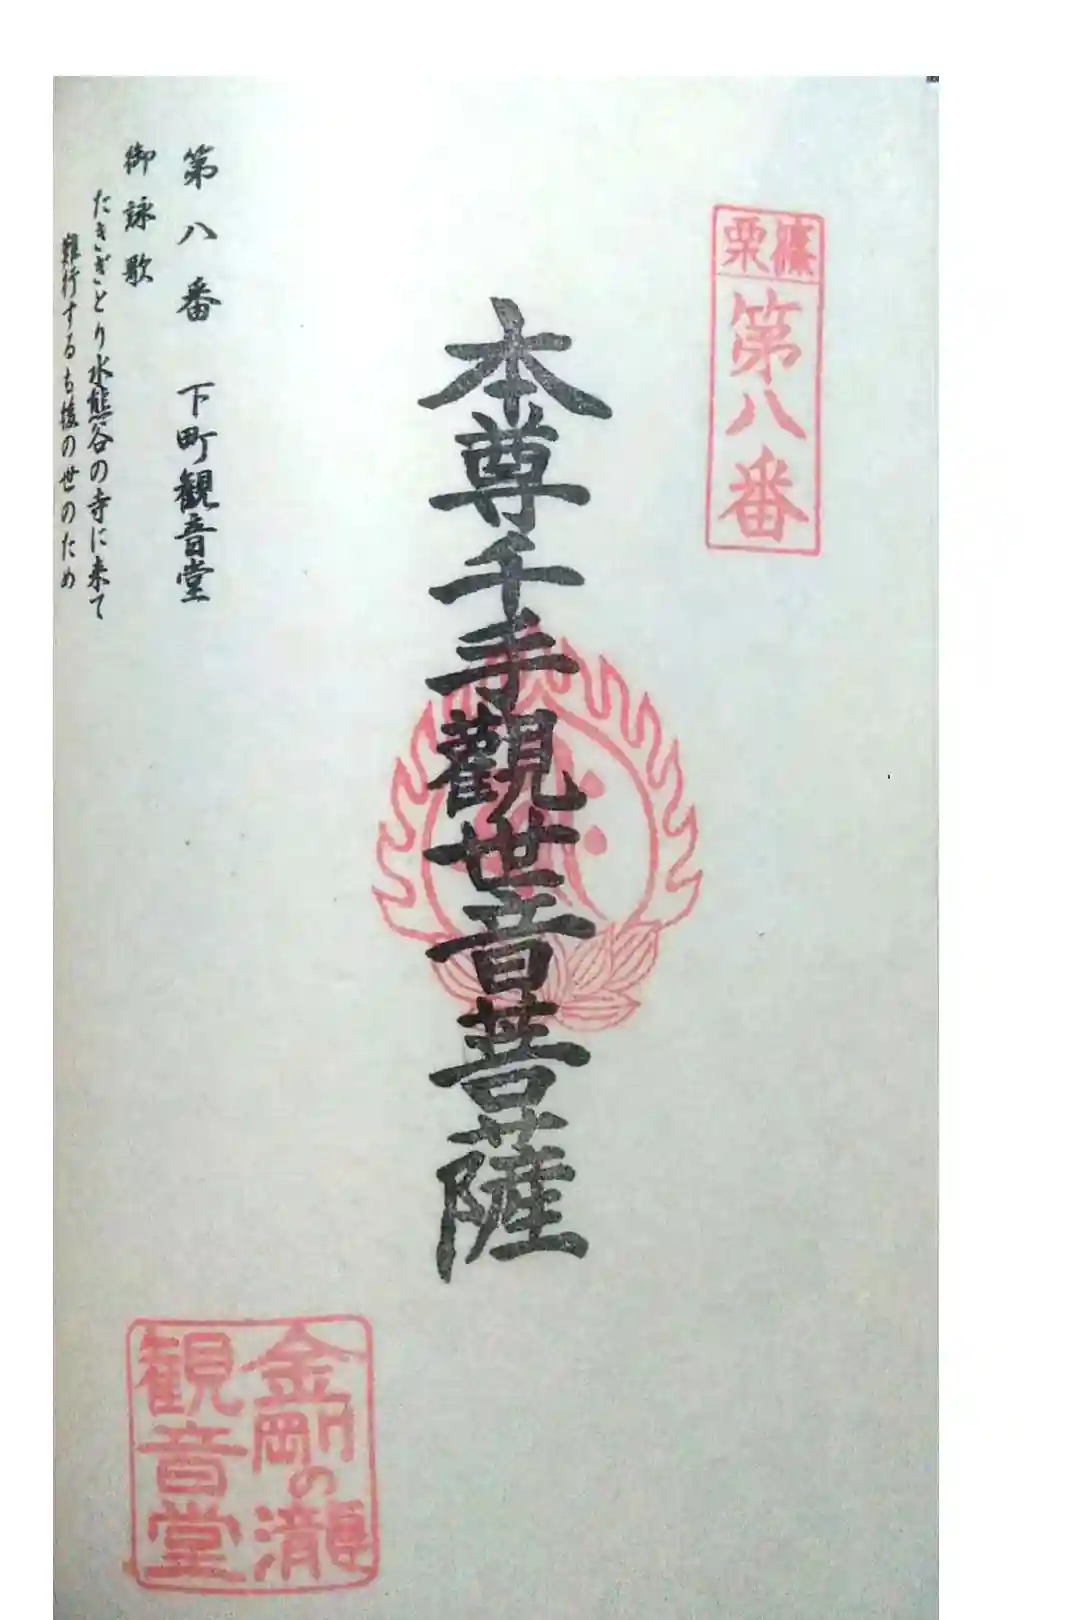 篠栗
第八番
本尊千手觀世音菩薩
第八番 下町観音堂
御詠歌
たきぎとり水熊谷の寺に来て
難行するも後の世のため
金剛の瀧
観音堂